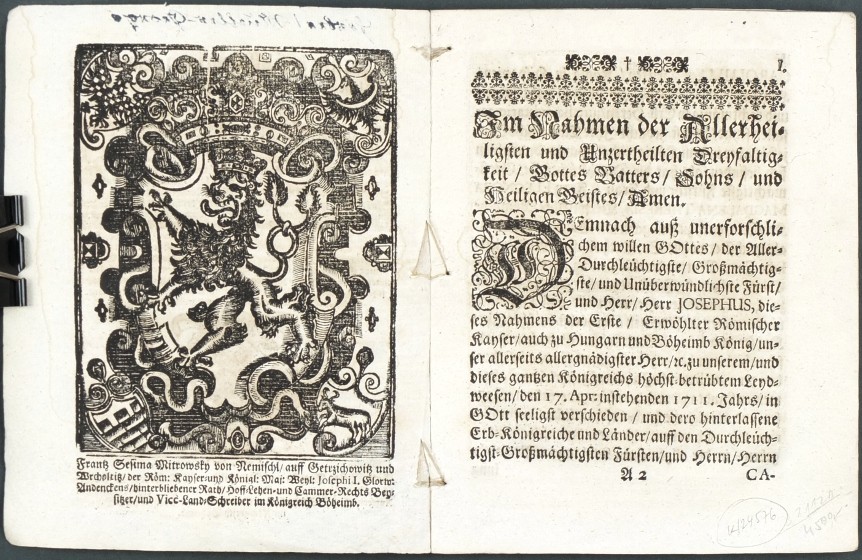 Frantz Sesima Mitrowsky von Nemischl/ auff Getrzichowitz und
Wrcholtitz/ der Röm: Kayser-und Königl: Maj: Weyl: Josephi I. Glorw:
Andenckens/hinterbliebener Rath/ Hoff-Lehen-und Cammer-Rechts Bey-
sitzer/und Vicc-Land-Schreiber im Königreich Böheimb.
† 1.
Im Nahmen der Allerhei-
ligsten und Unzertheilten Dreyfaltig-
keit / Gottes Vatters/ Sohns / und
Heiligen Geistes/ Amen.
DEmnach auß unerforschli-
chem willen GOttes/ der Aller-
Durchleüchtigste/ Großmächtig-
ste/ und Unüberwündlichste Fürst/
und Herr/ Herr JOSEPHUS, die-
ses Nahmens der Erste / Erwöhlter Römischer
Kayser/ auch zu Hungarn und Böheimb König/ un-
ser allerseits allergnädigster Herr/ ꝛc. zu unserem/ und
dieses gantzen Königreichs höchst-betrübtem Leyd-
weesen/ den 17. Apr: instehenden 1711. Jahrs/ in
GOtt seeligst verschieden / und dero hinterlassene
Erb-Königreiche und Länder/ auff den Durchleüch-
tigst-Großmächtigsten Fürsten/ und Herrn/ Herrn
A 2 CA-